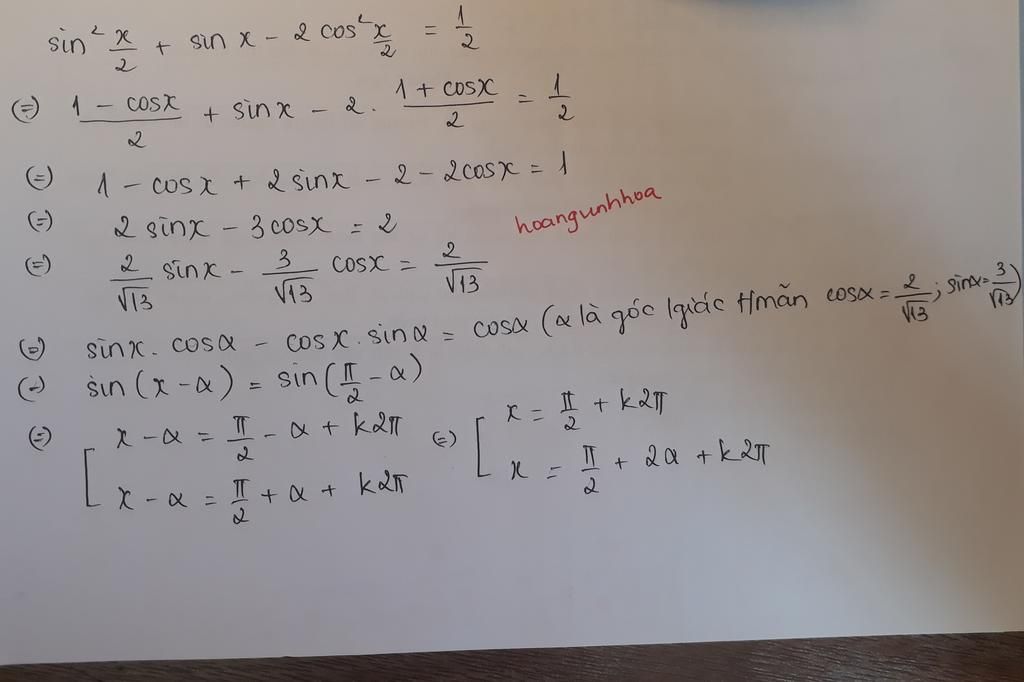 sin² x/2 + sin x - 2 cos² x/2 = 1/2
(=) (1 - cosx)/2 + sinx - 2. (1 + cosx)/2 = 1/2
(=) 1 - cosx + 2 sinx - 2 - 2cosx = 1
(=) 2 sinx - 3cosx = 2
hoangunhhoa
(=) 2/√13 sinx - 3/√13 cosx = 2/√13
(=) sinx. cosα - cosx. sinα = cosα (α là góc lgiác t/mãn cosα = 2/√13; sinα = 3/√13)
(=) sin(x - α) = sin(π/2 - α)
(=) [ x - α = π/2 - α + k2π (=) [ x = π/2 + k2π
x - α = π/2 + α + k2π x = π/2 + 2α + k2π